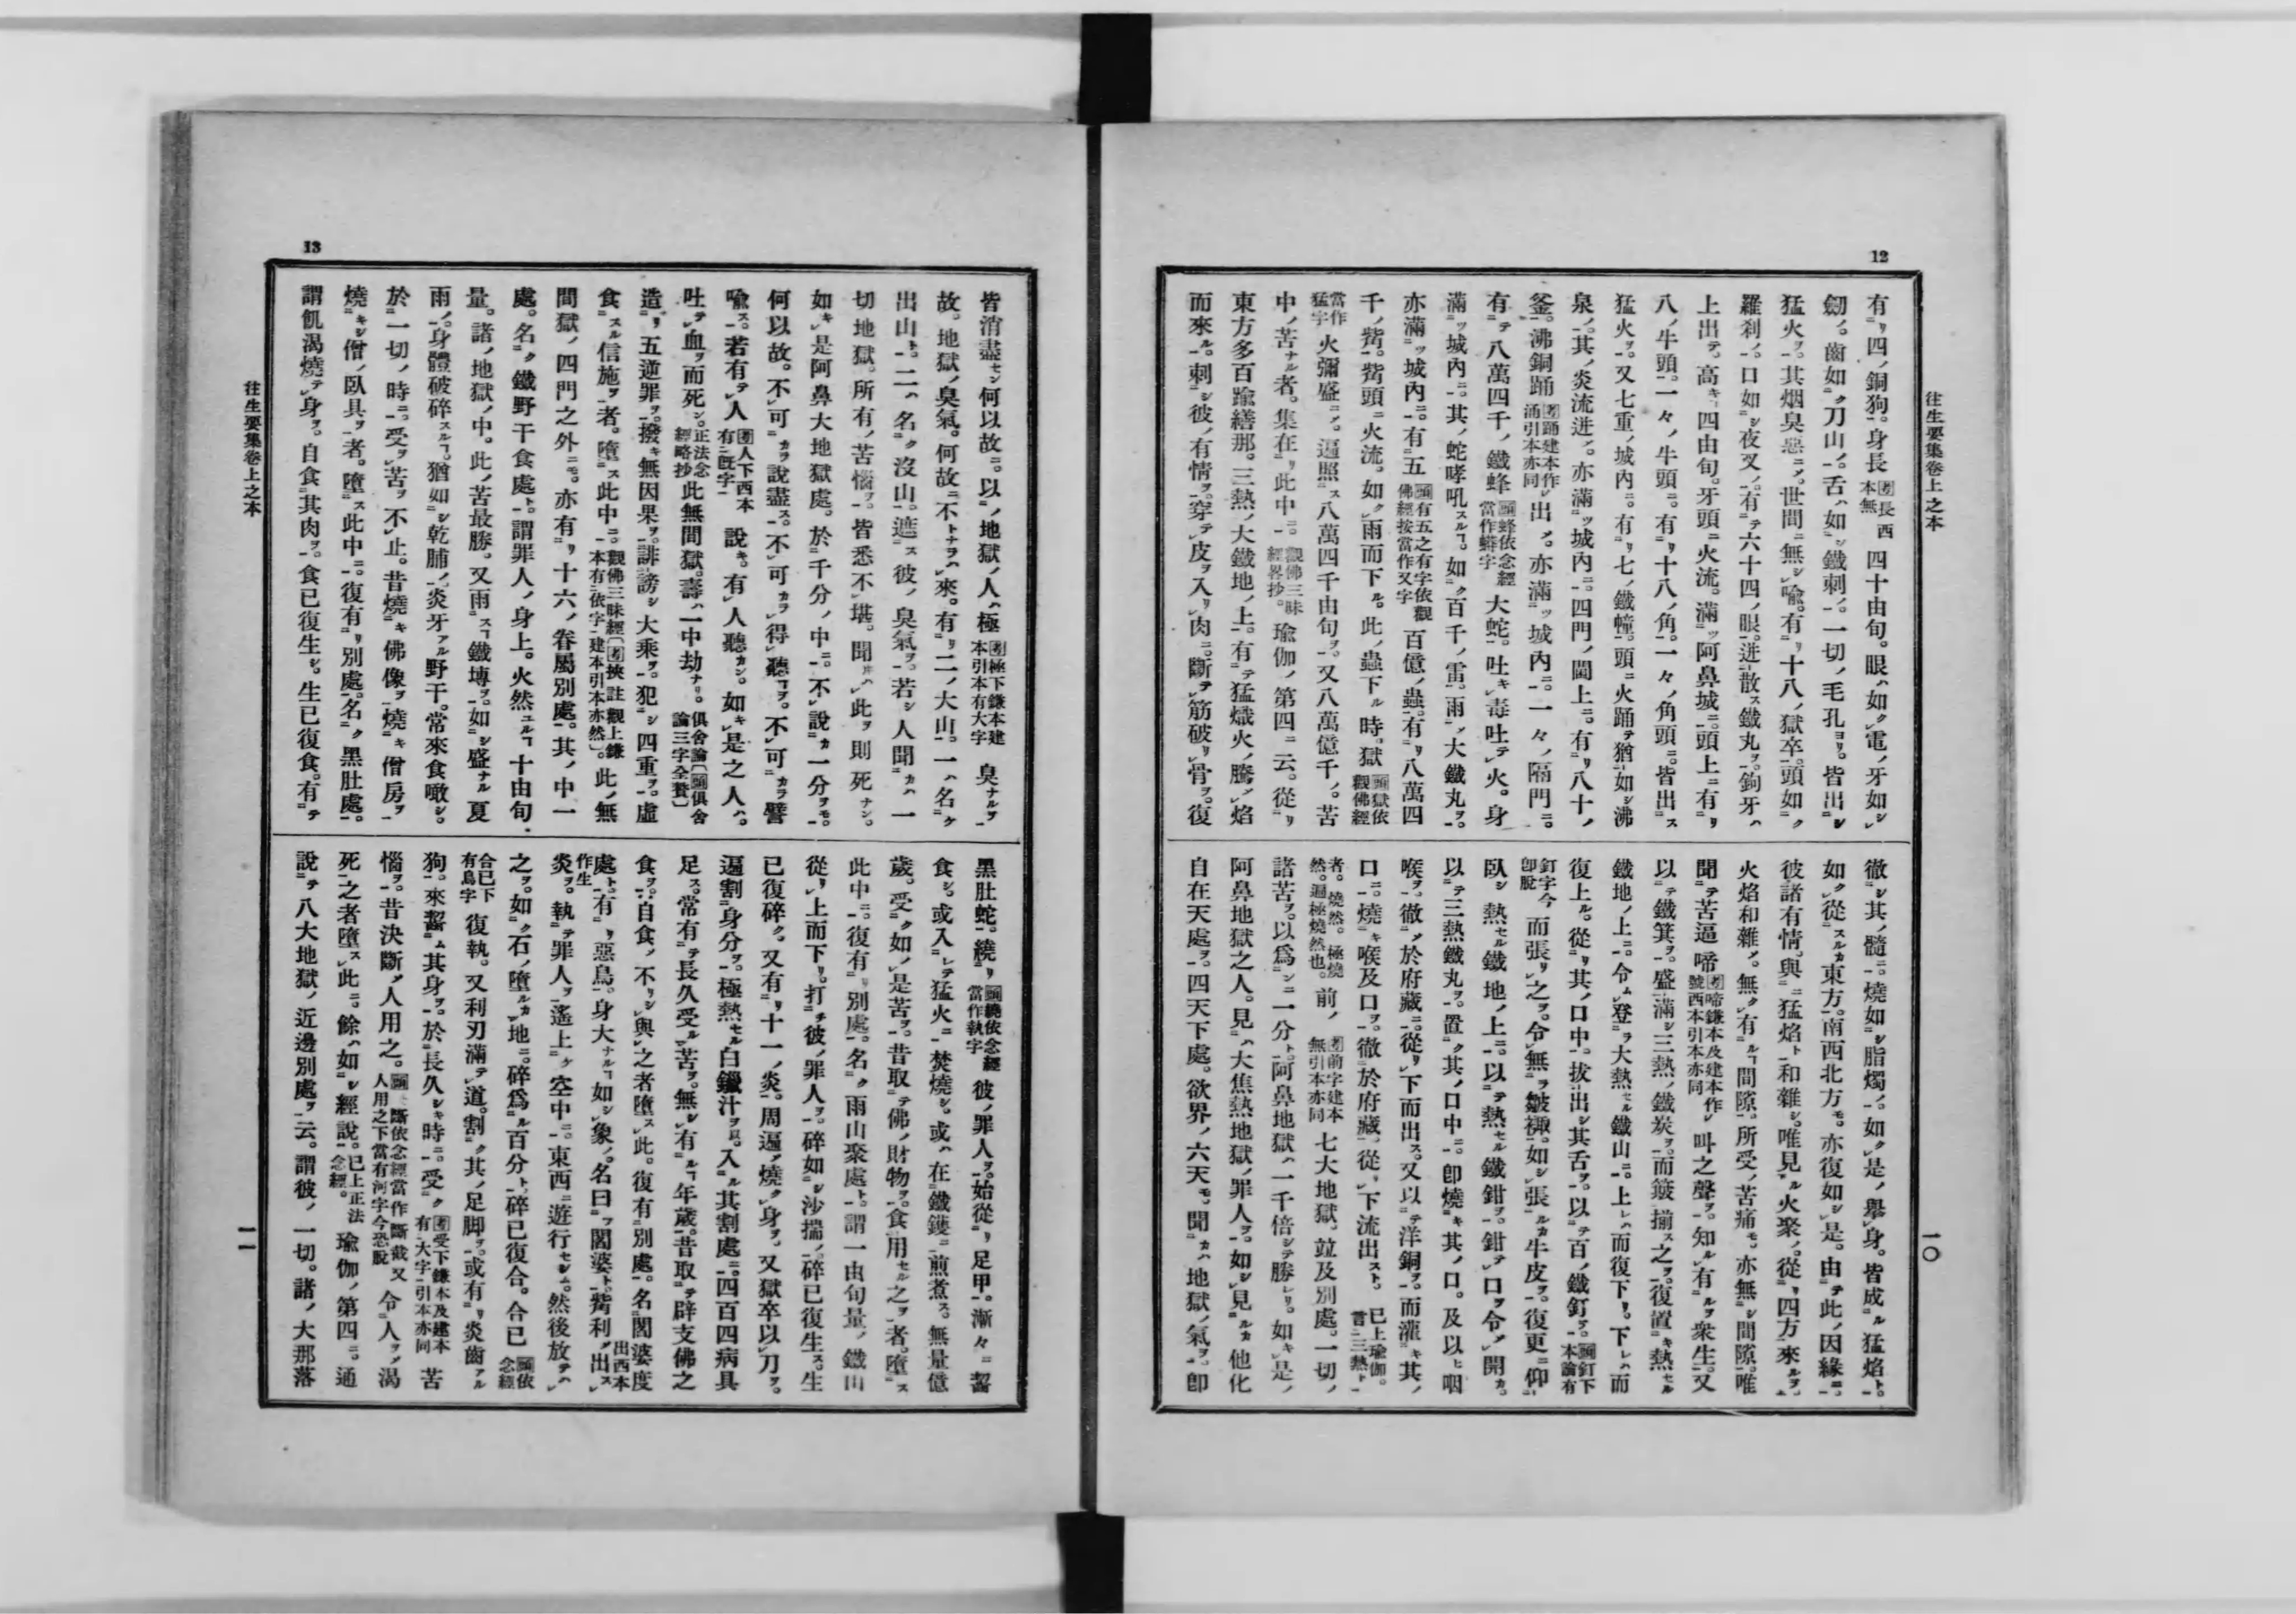 往生要集卷上之本
12
有四銅狗。身長四十由旬。眼如電。牙如
劒。齒如刀山。舌如鐵刺。一切毛孔。皆出
猛火。其烟臭惡。世間無喩。有十八獄卒。頭如
羅刹。口如夜叉。有六十四眼。迸散鐵丸。鉤牙
上出。高四由旬。牙頭火流。滿阿鼻城。頭上有
八牛頭。一々牛頭。有十八角。一々角頭。皆出
猛火。又七重城內。有七鐵幢。頭火踊猶如沸
泉。其炎流迸。亦滿城內。四門閫上。有八十
釜。沸銅踊出。亦滿城內。一々隔門。
有八萬四千鐵蜂大蛇。吐毒吐火。身
滿城內。其蛇哮吼。如百千雷。雨大鐵丸。
亦滿城內。有五百億蟲。有八萬四
千觜。觜頭火流。如雨而下。此蟲下時。獄
火彌盛。遍照八萬四千由旬。又八萬億千苦
中苦者。集在此中。觀佛三昧經畧抄。瑜伽第四云。從
東方多百踰繕那。三熱大鐵地上。有猛熾火。騰焰
而來。刺彼有情。穿皮入肉。斷筋破骨。復
徹其髓。燒如脂燭。如是擧身。皆成猛焰。
如從東方。南西北方。亦復如是。由此因緣。
彼諸有情。與猛焰和雜。唯見火聚。從四方來。
火焰和雜。無有間隙。所受苦痛。亦無間隙。唯
聞苦逼啼叫之聲。知有衆生。又
以鐵箕。盛滿三熱鐵炭。而簸揃之。復置熱
鐵地上。令登大熱鐵山。上而復下。下而
復上。從其口中。拔出其舌。以百鐵釘。
釘字今卽脫而張之。令無皺襵。如張牛皮。復更仰
臥熱鐵地上。以熱鐵鉗。鉗口令開。
以三熱鐵丸。置其口中。卽燒其口。及以咽
喉。徹於府藏。從下而出。又以洋銅。而灌其
口。燒喉及口。徹於府藏。從下流出。已上瑜伽。言三熱
者。燒然。極燒然。遍極燒然也。前七大地獄。竝及別處。一切
諸苦。以爲一分。阿鼻地獄。一千倍勝。如是
阿鼻地獄之人。見大焦熱地獄罪人。如見他化
自在天處。四天下處。欲界六天。聞地獄氣。卽
一〇
13
往生要集卷上之本
皆消盡。何以故。以地獄人極臭
故。地獄臭氣。何故不來。有二大山。一名
出山。二名沒山。遮彼臭氣。若人聞一
切地獄。所有苦惱。皆悉不堪。聞此則死。
如是阿鼻大地獄處。於千分中。不說一分。
何以故。不可說盡。不可得聽。不可譬
喩。若有人說。有人聽。如是之人。
吐血而死。正法念經略抄此無間獄。壽一中劫。
造五逆罪。撥無因果。誹謗大乘。犯四重。虛
食信施者。墮此中。此無
間獄。四門之外。亦有十六眷屬別處。其中一
處。名鐵野干食處。謂罪人身上。火然十由旬
量。諸地獄中。此苦最勝。又雨鐵塼。如盛夏
雨。身體破碎。猶如乾脯。炎牙野干。常來食噉。
於一切時。受苦不止。昔燒佛像燒僧房
燒僧臥具者。墮此中。復有別處。名黑肚處。
謂飢渴燒身。自食其肉。食已復生。生已復食。有
黑肚蛇。繞彼罪人。始從足甲。漸々齧
食。或入猛火焚燒。或在鐵鑊煎煮。無量億
歲。受如是苦。昔取佛財物。食用之者。墮
此中。復有別處。名雨山聚處。謂一由旬量鐵山
從上而下。打彼罪人。碎如沙揣。碎已復生。生
已復碎。又有十一炎。周遍燒身。又獄卒以刀。
遍割身分。極熱白鑞汁。入其割處。四百四病具
足。常有長久受苦。無有年歲。昔取辟支佛之
食。自食不與之者墮此。復有別處。名閻婆度
處。有惡鳥。身大如象。名曰閻婆。觜利出
炎。執罪人遙上空中。東西遊行。然後放
之。如石墮地。碎爲百分。碎已復合。合已
復執。又利刃滿道。割其足脚。或有炎齒
狗。來齧其身。於長久時。受苦
惱。昔決斷人用之。令人渴
死之者墮此。餘如經說。已上正法念經。瑜伽第四。通
說八大地獄近邊別處云。謂彼一切。諸大那落
一一